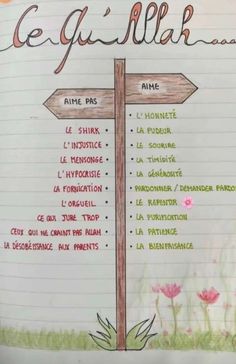 Ce qu'Allah....
AIME PAS
AIME
LE SHIRK •
L'INJUSTICE •
LE MENSONGE •
L'HYPOCRISIE •
LA FORNICATION •
L'ORGUEIL •
CE QUI JURE TROP •
CEUX QUI NE CRAINT PAS ALLAH •
LA DÉSOBÉISSANCE AUX PARENTS •
• L'HONNETÉ
• LA PUDEUR
• LE SOURIRE
• LA TIMIDITÉ
• LA GÉNÉROSITÉ
• PARDONNER / DEMANDER PARDON
• LE REPENTIR
• LA PURIFICATION
• LA PATIENCE
• LA BIENFAISANCE